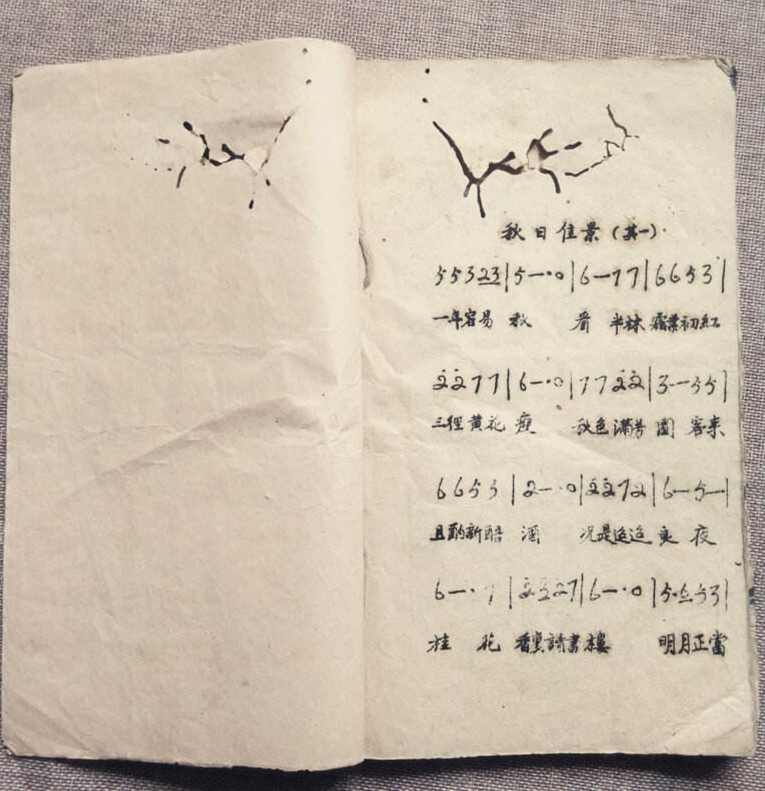 秋日佳景(其一)
5 5 3 2 3 | 5 — · 0 | 6 — 7 7 | 6 6 5 3 |
一年容易 秋 看 半林 霜葉初紅
2 2 7 7 | 6 — · 0 | 7 7 2 2 | 3 — 3 5 |
三徑黄花 瘦 秋色滿芳 園 客来
6 6 5 3 | 2 — · 0 | 2 2 7 2 | 6 — 5 — |
且酌新醅 酒 况是迢迢 夜
6 — · 7 | 2 3 2 7 | 6 — · 0 | 5 · 6 5 3 |
桂 花 香裏詩書樓 明月正當